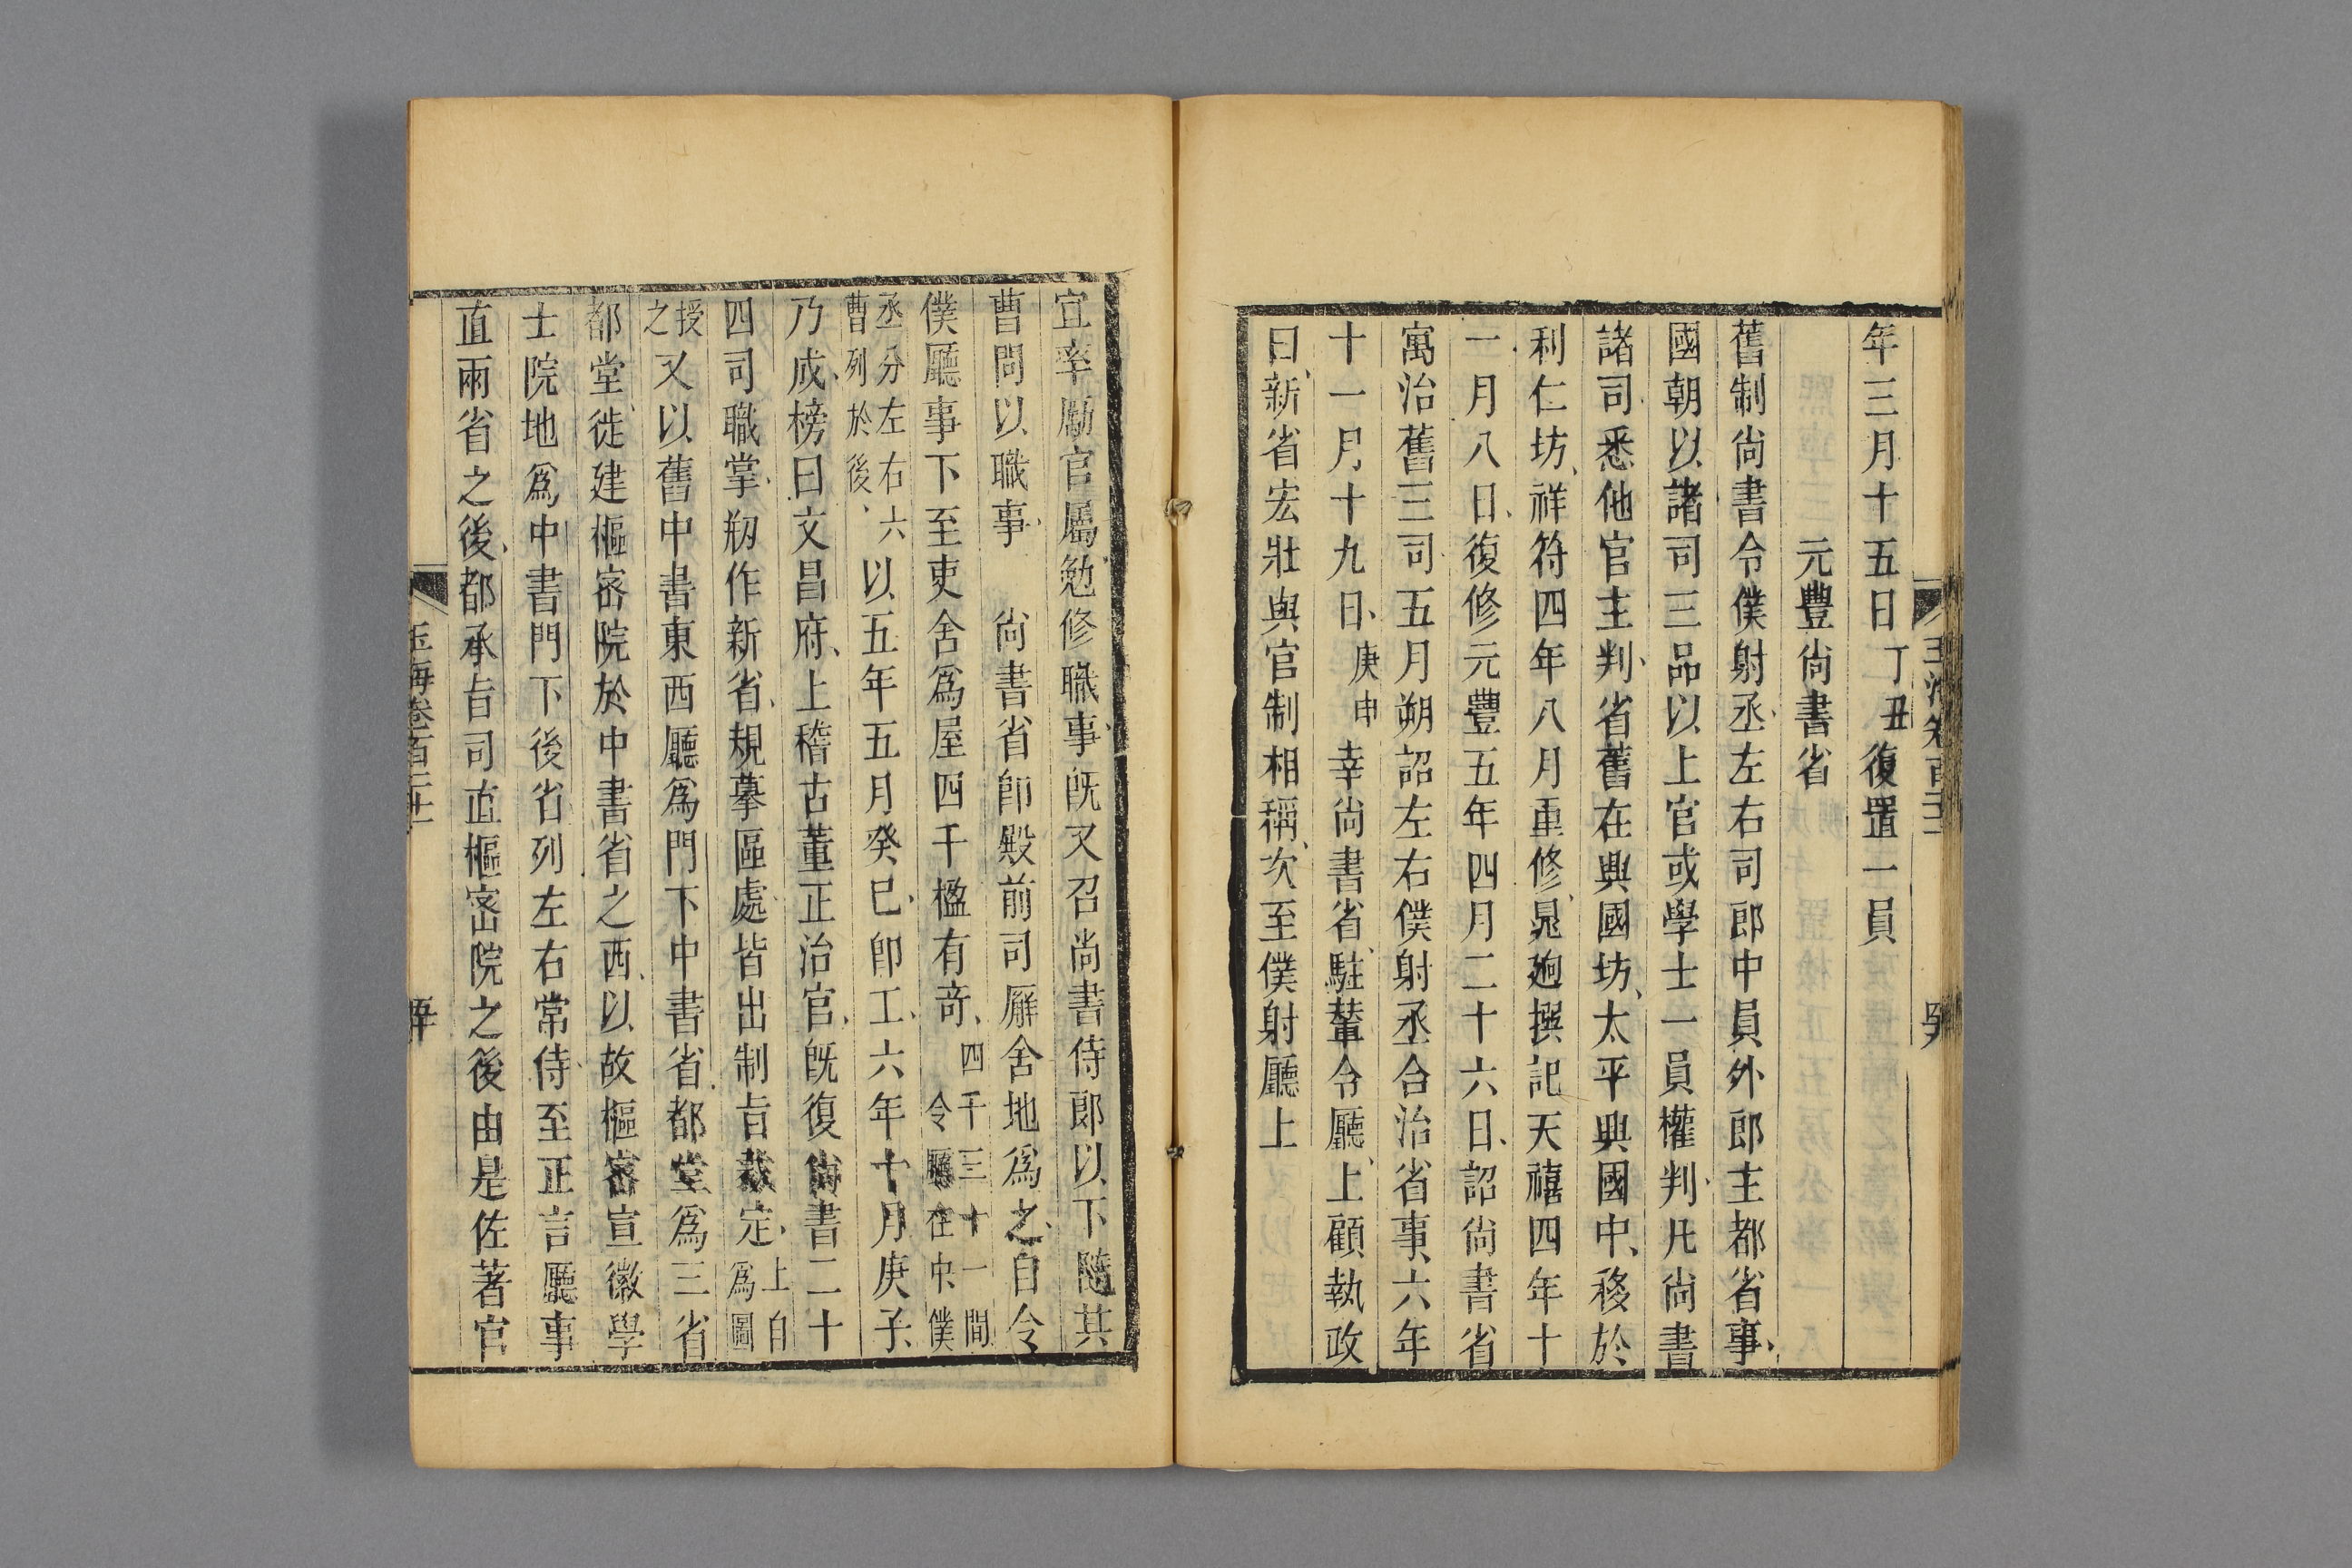 年三月十五日丁丑復置一員
元豐尚書省
舊制尚書令僕射丞左右司郎中員外郎主都省事
國朝以諸司三品以上官或學士一員權判凡尚書
諸司悉他官主判省舊在興國坊太平興國中移於
利仁坊祥符四年八月重修晁迥撰記天禧四年十
一月八日復修元豐五年四月二十六日詔尚書省
寓治舊三司五月朔詔左右僕射丞合治省事六年
十一月十九日庚申幸尚書省駐輦令廳上顧執政
曰新省宏壯與官制相稱次至僕射廳上
宜率勵官屬勉修職事旣又召尚書侍郎以下隨其
曹問以職事　尚書省卽殿前司廨舍地爲之自令
僕廳事下至吏舍爲屋四千楹有奇四千三十一間令廳在中僕
丞分左右六曹列於後以五年五月癸巳卽工六年十月庚子
乃成榜曰文昌府上稽古董正治官旣復尚書二十
四司職掌剏作新省規摹區處皆出制旨裁定上自爲圖
授之又以舊中書東西廳爲門下中書省都堂爲三省
都堂徙建樞密院於中書省之西以故樞密宣徽學
士院地爲中書門下後省列左右常侍至正言廳事
直兩省之後都承旨司直樞密院之後由是佐著官
玉海卷百二十一